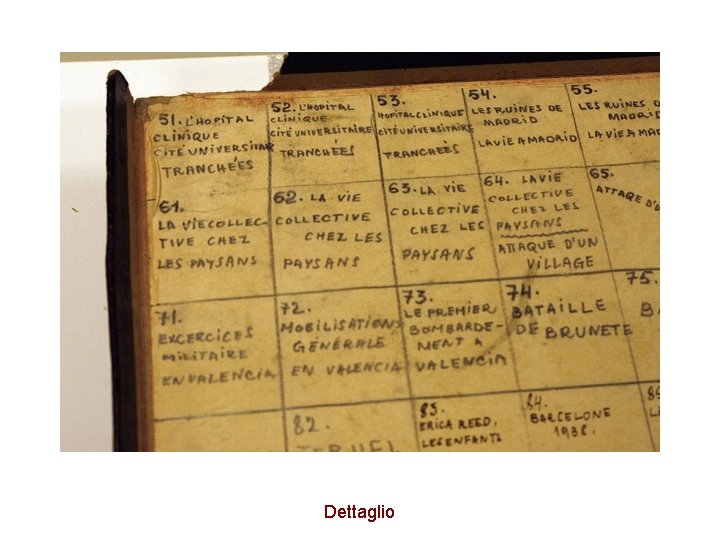 51. L'HOPITAL
CLINIQUE
CITÉ UNIVERSITAIR
TRANCHÉES
52. L'HOPITAL
CLINIQUE
CITÉ UNIVERSITAIRE
TRANCHÉES
53.
HOPITAL CLINIQUE
CITÉ UNIVERSITAIRE
TRANCHEÉS
54.
LES RUINES DE
MADRID
LA VIE A MADRID
55.
LES RUINES D
MADRI
LA VIE A MAD
61.
LA VIE COLLEC-
TIVE CHEZ
LES PAYSANS
62. LA VIE
COLLECTIVE
CHEZ LES
PAYSANS
63. LA VIE
COLLECTIVE
CHEZ LES
PAYSANS
64. LA VIE
COLLECTIVE
CHEZ LES
PAYSANS
ATTAQUE D'UN
VILLAGE
65.
ATTAQE D'U
71.
EXCERCICES
MILITAIRE
EN VALENCIA
72.
MOBILISATION
GÉNÉRALE
EN VALENCIA
73.
LE PREMIER
BOMBARDE-
MENT A
VALENCIA
74.
BATAILLE
DE BRUNETE
75.
BA
82.
TERUEL
83.
ERICA REED,
LES ENFANTS
84.
BARCELONE
1938.
Dettaglio